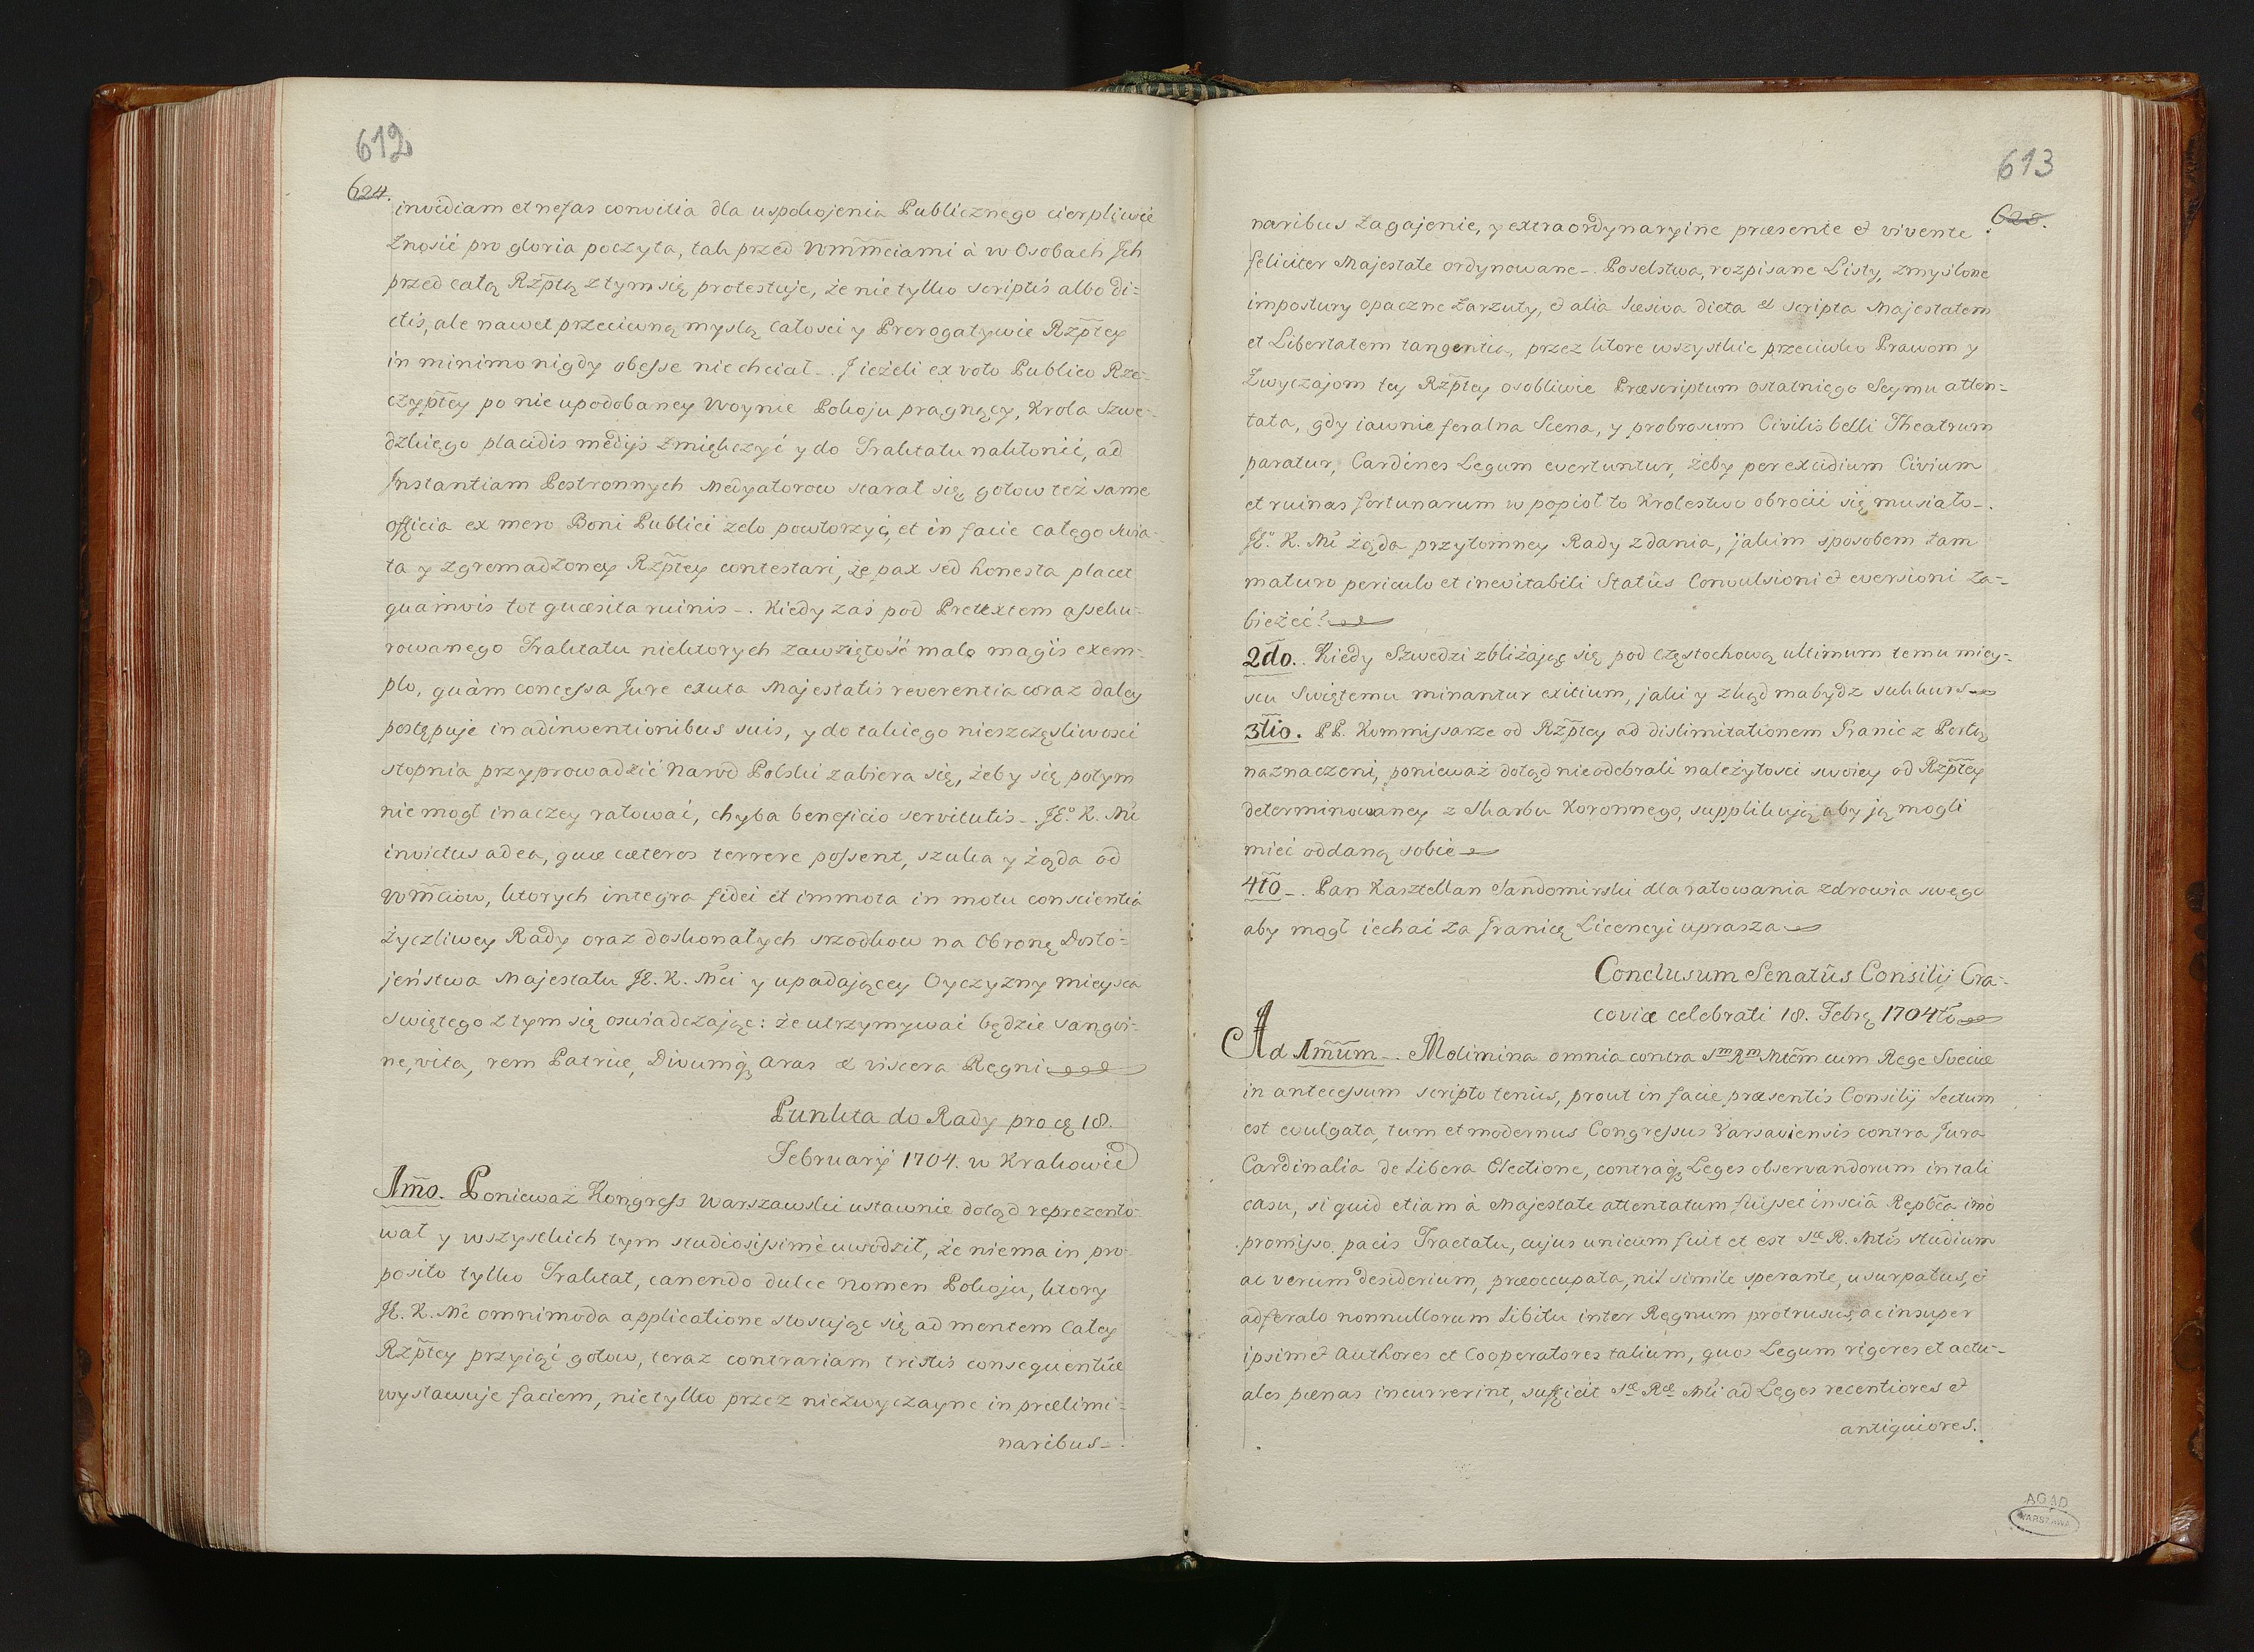 612
624.
invidiam et nefas convitia dla uspokojenia Publicznego cierpliwie
znosić pro gloria poczyta, tak przed Wm̃m̃ciami à w Osobach Jch
przed całą Rzp̃tą z tym się protestuje, że nie tylko scriptis albo di-
ctis, ale nawet przeciwną myslą całosci y Prerogatywie Rzp̃tey
in minimo nigdy obesse nie chciał_. J ieżeli ex voto Publico Rze-
czyp̃tey po nie upodobaney Woynie Pokoju pragnący, Krola Szwe-
dzkiego placidis medijs zmiękczyć y do Traktatu nakłonić, ad
Jnstantiam Postronnych Medyatorow starał się, gotow też same
officia ex mero Boni Publici zelo powtorzyć, et in facie całego swia-
ta y zgromadzoney Rzp̃tey contestari, że pax sed honesta placet
quamvis tot quæsita ruinis_. Kiedy zaś pod Pretextem asseku-
rowanego Traktatu niektorych zawziętość malo magis exem-
plo, quàm concessa Jure exuta Majestatis reverentia coraz daley
postępuje in adinventionibus suis, y do takiego nieszczęsliwosci
stopnia przyprowadzić Narod Polski zabiera się, żeby się potym
nie mogł inaczey ratować, chyba beneficio servitutis_. JE.º K. Mć
invictus ad ea, quæ cæteros terrere possent, szuka y żąda od
Wm̃ciow, ktorych integra fidei et immota in motu conscientia
życzliwey Rady oraz doskonałych srzodkow na Obronę Dosto-
jeństwa Majestatu JE. K. Mći y upadającey Oyczyzny mieysca
swiętego z tym się oswiadczając: że utrzymywać będzie sangvi-
ne, vita, rem Patriæ, Divumq̨ aras & viscera Regni
Punkta do Rady pro ię 18.
Februarij 1704. w Krakowie
1m̃o. Ponieważ Kongress Warszawski ustawnie dotąd reprezento-
wał y wszystkich tym studiosissimè uwodził, że nie ma in pro-
posito tylko Traktat, canendo dulce nomen Pokoju, ktory
JE. K. Mć omnimoda applicatione stosując się ad mentem całey
Rzp̃tey przyiąć gotow, teraz contrariam tristis consequentiæ
wystawuje faciem, nie tylko przez niezwyczayne in prælimi-
naribus_.
613
628.
naribus zagajenie, y extraordynaryine præsente & vivente
feliciter Majestate ordynowane_. Poselstwa, rozpisane Listy, zmyślone
impostury opaczne zarzuty, & alia læsiva dicta & scripta Majestatem
et Libertatem tangentia, przez ktore wszystkie przeciwko Prawom y
Zwyczajom tey Rzp̃tey osobliwie Præscriptum ostatniego Seymu atten-
tata, gdy iawnie feralna Scena, y probrosum Civilis belli Theatrum
paratur, Cardines Legum evertuntur, żeby per excidium Civium
et ruinas fortunarum w popioł to Krolestwo obrocić się musiało_.
JE.º K. Mć żąda przytomney Rady zdania, jakim sposobem tam
maturo periculo et inevitabili Statûs Convulsioni & eversioni za-
bieżeć?
2do. Kiedy Szwedzi zbliżając się pod Częstochową ultimum temu miey-
scu Swiętemu minantur exitium, jaki y zkąd ma bydz sukkurs
3tio. PP. Kommissarze od Rzp̃tey ad dislimitationem Granic z Portą
naznaczeni, ponieważ dotąd nie odebrali należytosci swoiey od Rzp̃tey
determinowaney z Skarbu Koronnego, supplikują aby ją mogli
mieć oddaną sobie
4to_. Pan Kasztellan Sandomirski dla ratowania zdrowia swego
aby mogł iechać za Granicę Licencyi uprasza
Conclusum Senatûs Consilij Cra-
coviæ celebrati 18. Febrę 1704to
Ad 1m̃um_. Molimina omnia contra Sm Rm Mtẽm cum Rege Sveciæ
in antecessum scripto tenus, prout in facie præsentis Consilij lectum
est evulgata, tum et modernus Congressus Varsaviensis contra Jura
Cardinalia de Libera Electione, contraq̨ Leges observandorum in tali
casu, si quid etiam à Majestate attentatum fuisset insciâ Repb̃ca imò
promisso pacis Tractatu, cujus unicum fuit et est Sæ R. Mtis studium
ac verum desiderium, præoccupata, nil simile sperante, usurpatus, &
ad feralo nonnullorum libitu inter Regnum protrusus, ac insuper
ipsimet Authores et Cooperatores talium, quos Legum rigores et actu-
ales pœnas incurrerint, sufficit Sæ Ræ Mti ad Leges recentiores &
antiquiores.
AGAD
WARSZAWA